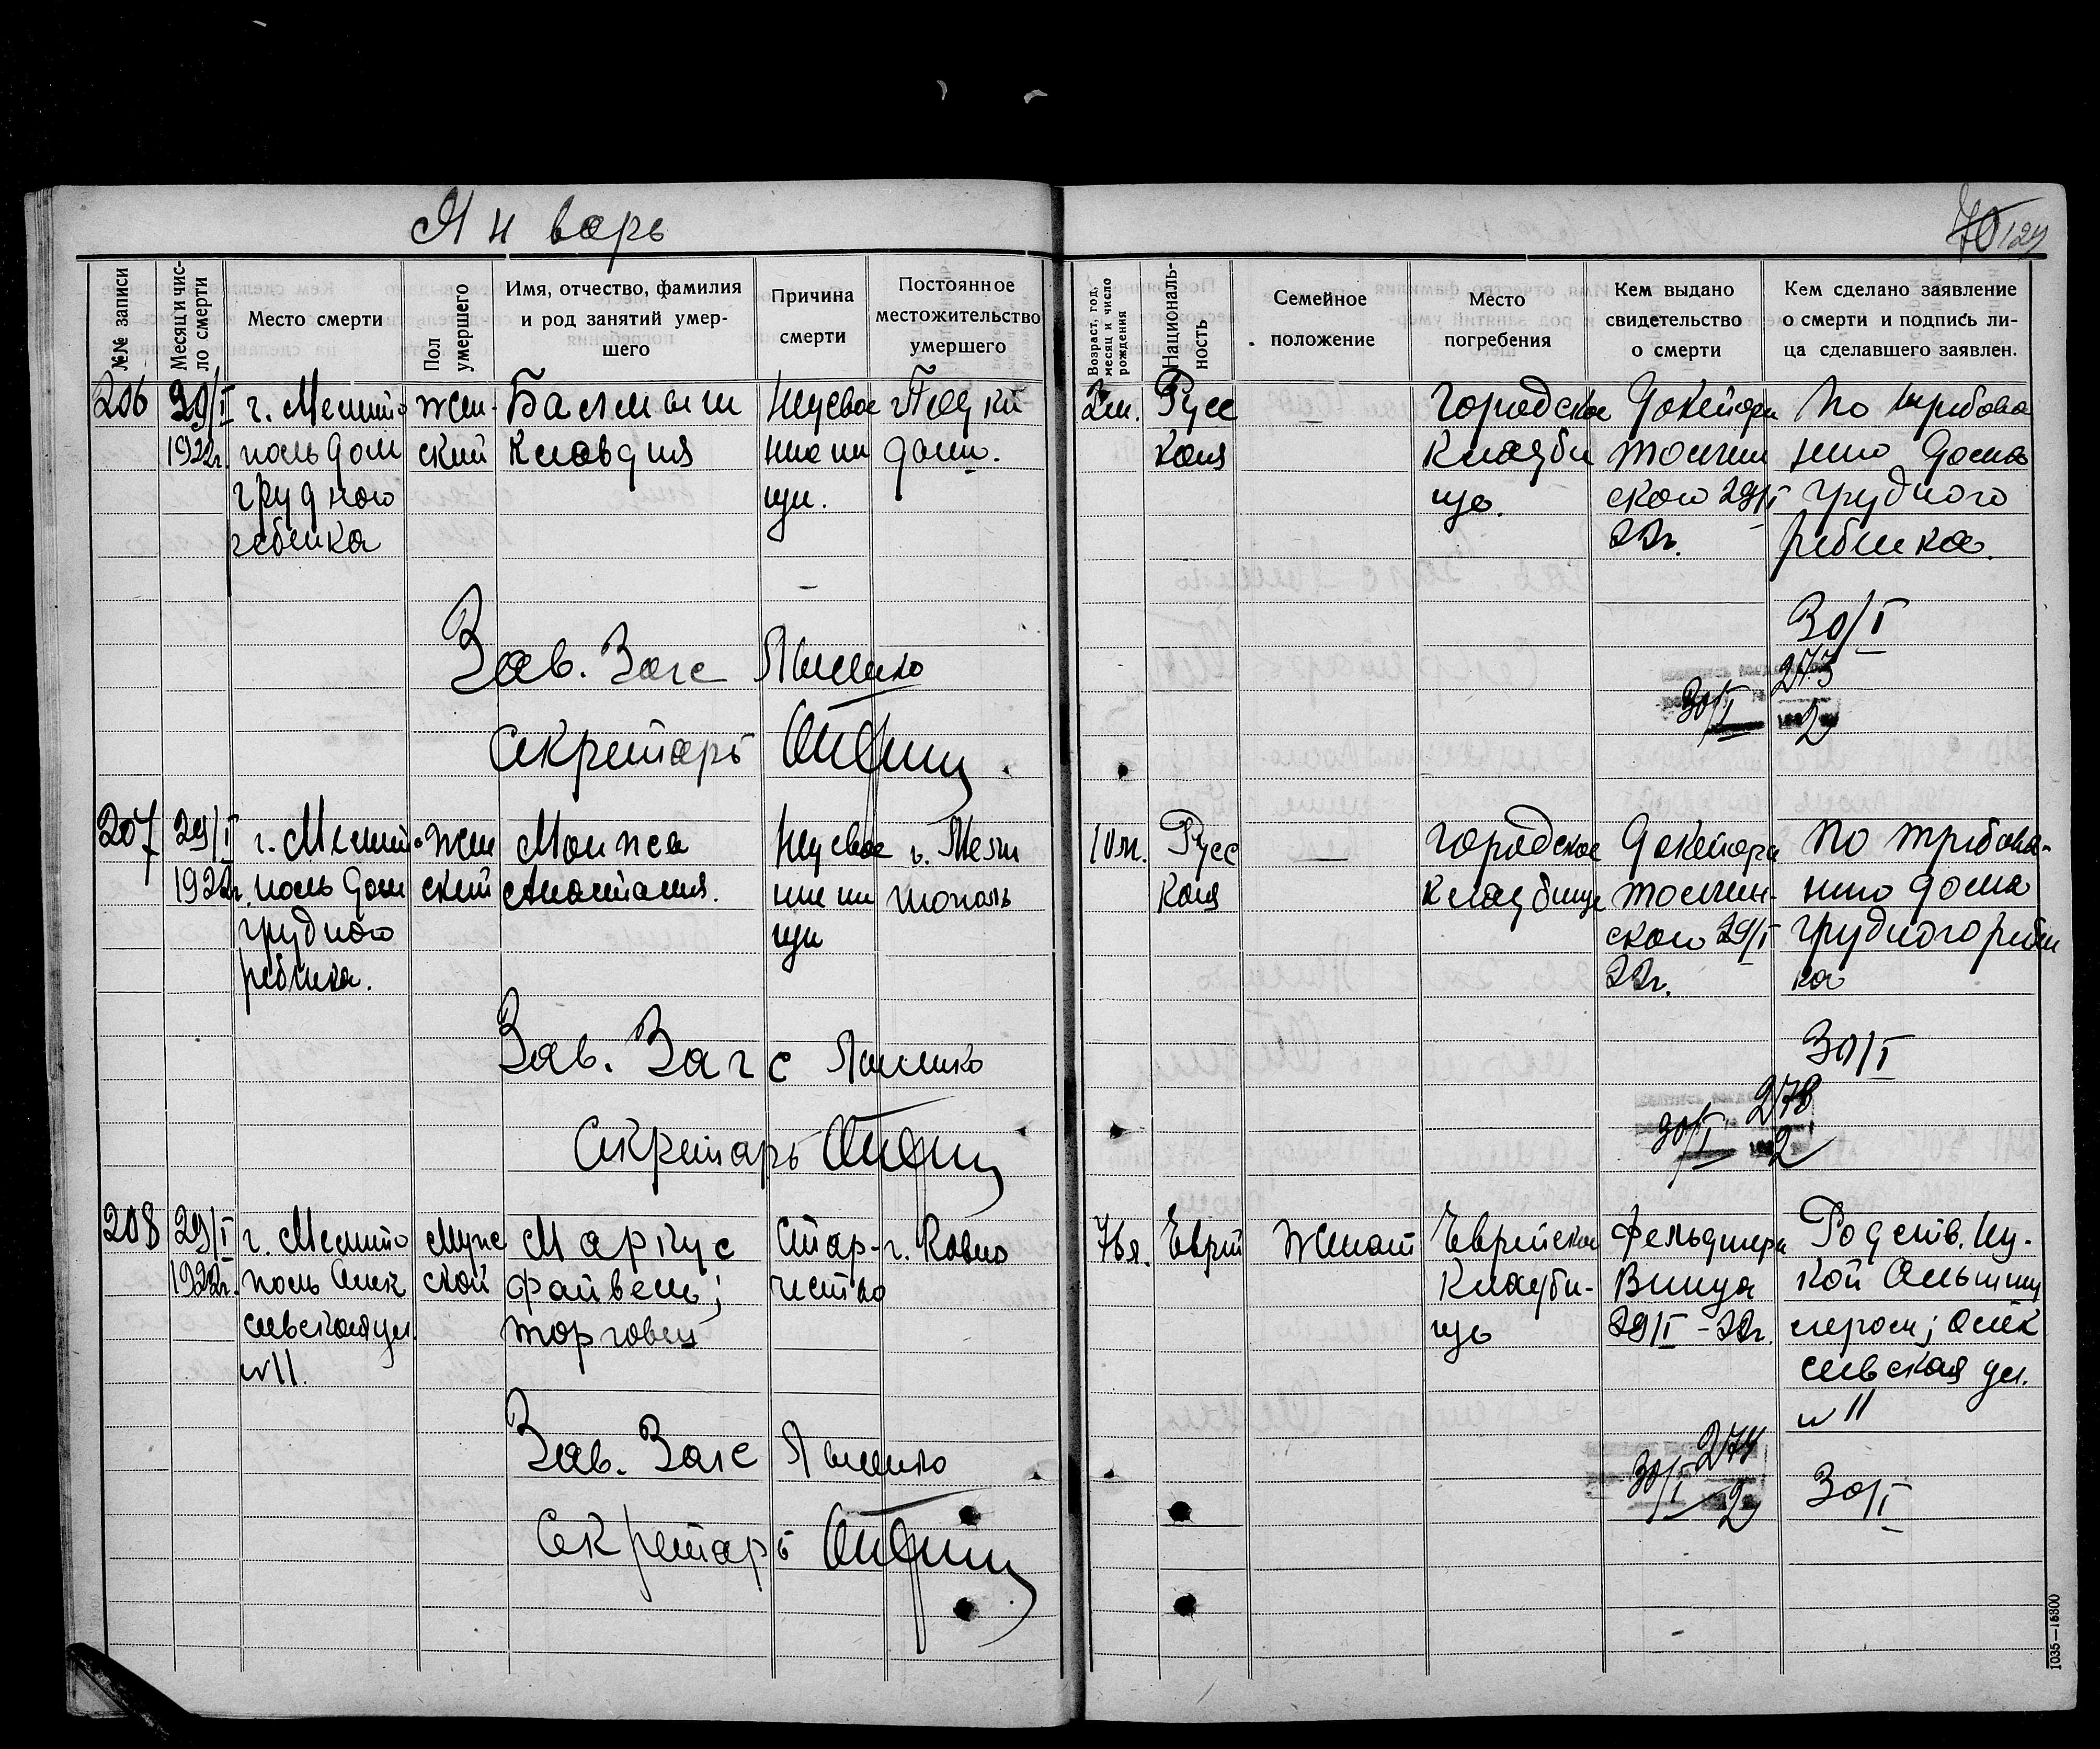 Январь
70 129
№№ записи
Месяц и число смерти
Место смерти
Пол умершего
Имя, отчество, фамилия
и род занятий умер-
шего
Причина
смерти
Постоянное
местожительство
умершего
Возраст, год,
месяц и число
рождения
Националь-
ность
Семейное
положение
Место
погребения
Кем выдано
свидетельство
о смерти
Кем сделано заявление
о смерти и подпись ли-
ца сделавшего заявлен.
206
29/I
1922г.
г. Мелито
поль дом
грудного
ребенка
жен-
ский
Клавдия
ни пи
щи.
2 м.
Русс
кая
—
Городское
кладби
ще.
Доктора
ского 29/I
22г.
По требова
нию дома
грудного
ребенка.
30/I
Зав. Загс
Секретарь
30/I
273
2
207
29/I
1922г.
г. Мелито
поль дом
грудного
ребенка.
жен
ский
Анастасия.
ние пи
щи
г. Мели
тополь
10 м.
Русс
кая
—
Городское
кладбище
Доктора
ского 29/I
22г.
По требова-
нию дома
грудного ребен
ка
30/I
Зав. Загс
Секретарь
30/I
278
2
208
29/I
1922г.
г. Мелито
поль Алек
сеевская ул.
№11.
Мужс
кой
Маркус
Файвель;
торговец
Стар-
чество
г. Ковно
76 л.
Еврей
Женат
Еврейское
кладби-
ще
Фельдшера
29/I - 22г.
Алек
сеевская ул.
№ 11
30/I
Зав. Загс
Секретарь
30/I
274
2
1035—15300